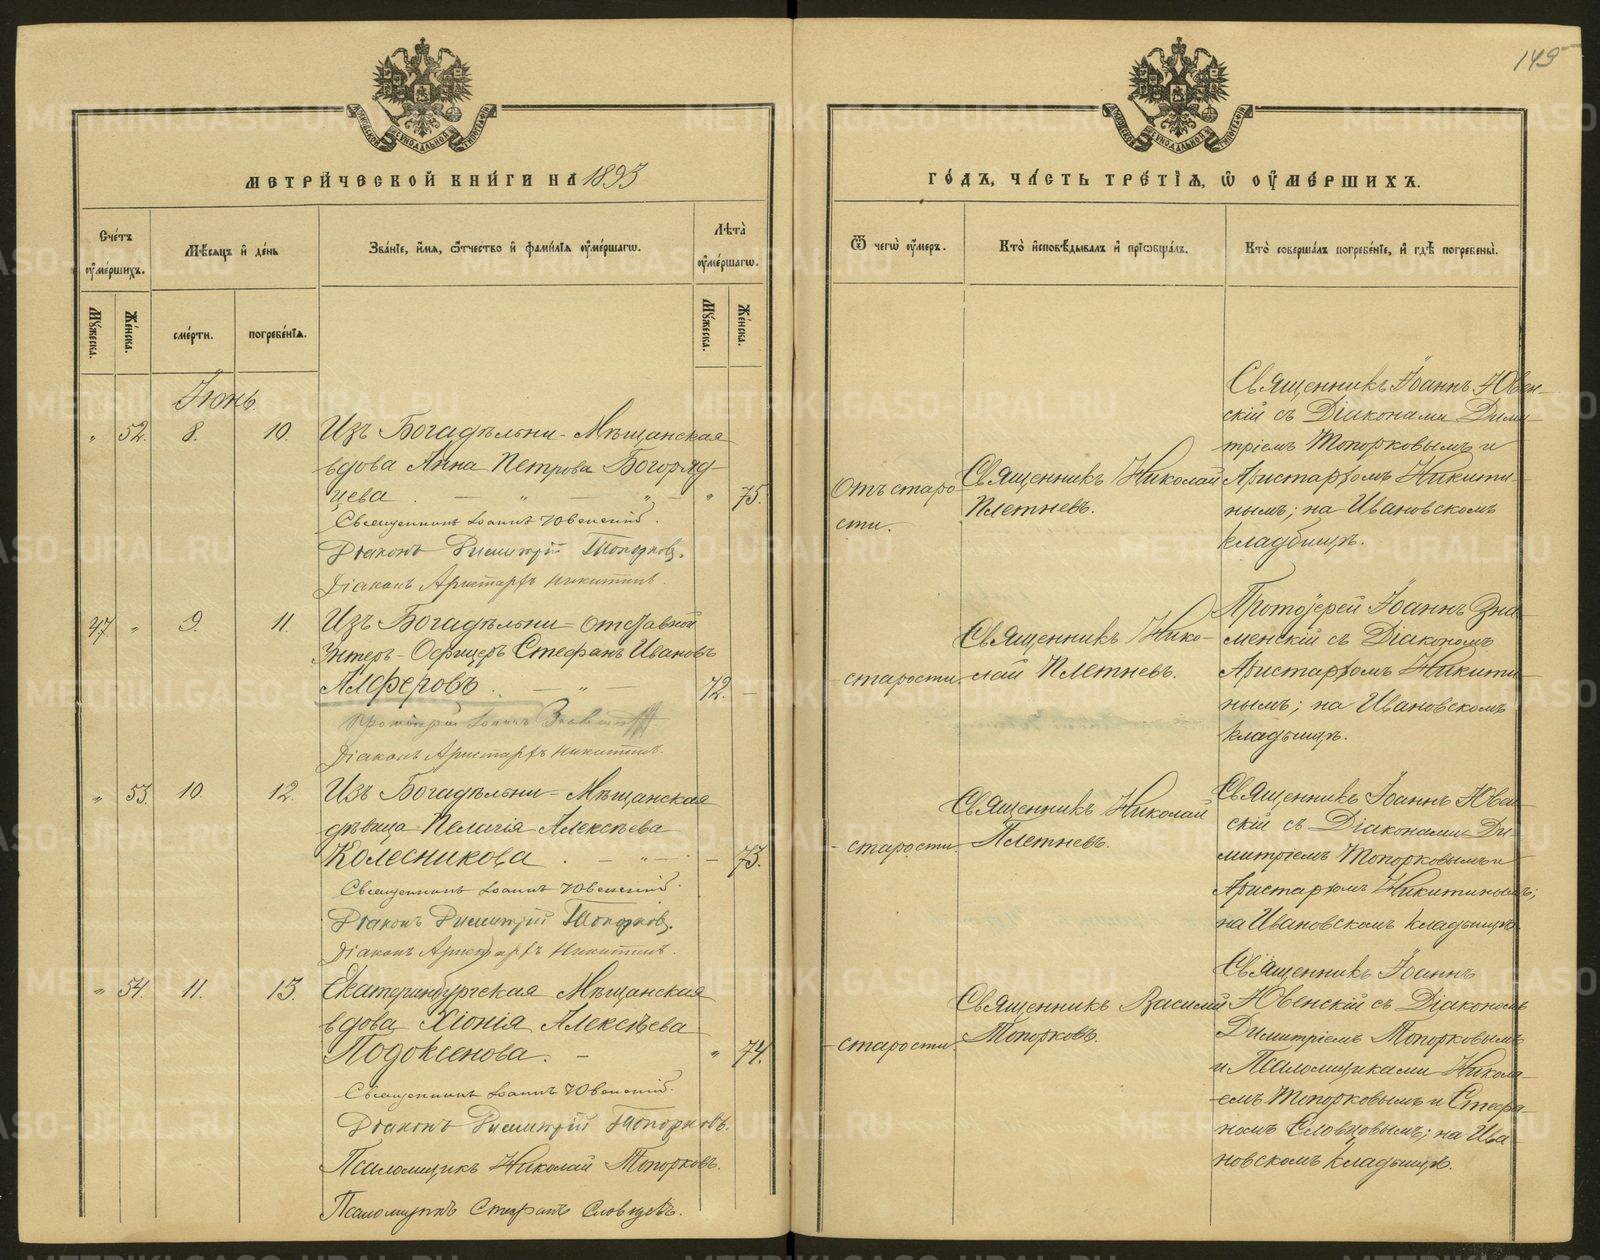 149
МЕТРИЧЕСКОЙ КНИГИ НА 1893
Счетъ оумершихъ.
Мѣсяцъ и день
Званіе, имя, отчество и фамилія оумершагѡ.
Лѣта оумершагѡ.
Мужеска.
Женска.
смерти.
погребенія.
Мужеска.
Женска.
Іюнь.
" 52. 8. 10. Изъ Богадѣльни - Мѣщанская
вдова Анна Петрова Богоряд-
цева. — " — " — " 75.
Священникъ Іоаннъ Ювенскій.
Діаконъ Димитрій Топорковъ.
Діаконъ Аристархъ Никитинъ.
47 " 9. 11. Изъ Богадѣльни - отставной
Унтеръ-Офицеръ Стефанъ Ивановъ
Алферовъ. — " — 72. —
Протоіерей Іоаннъ Знаменскій
Діаконъ Аристархъ Никитинъ.
" 53. 10. 12. Изъ Богадѣльни - Мѣщанская
дѣвица Пелагія Алексѣева
Колесникова. — " — — 73.
Священникъ Іоаннъ Ювенскій.
Діаконъ Димитрій Топорковъ.
Діаконъ Аристархъ Никитинъ.
" 54. 11. 13. Екатеринбургская Мѣщанская
вдова Хіонія Алексѣева
Подоксенова. — " 74.
Священникъ Іоаннъ Ювенскій.
Діаконъ Димитрій Топорковъ.
Псаломщикъ Николай Топорковъ.
Псаломщикъ Стефанъ Словцовъ.
ГОДЪ, ЧАСТЬ ТРЕТІЯ, Ѡ ОУМЕРШИХЪ.
Ѿ чегѡ оумеръ.
Кто исповѣдывалъ и пріѡбщалъ.
Кто совершалъ погребеніе, и гдѣ погребены.
Отъ старо-
сти.
Священникъ Николай
Плетневъ.
Священникъ Іоаннъ Ювен-
скій съ Діаконами Дими-
тріемъ Топорковымъ и
Аристархомъ Никити-
нымъ; на Ивановскомъ
кладбищѣ.
- старости.
Священникъ Нико-
лай Плетневъ.
Протоіерей Іоаннъ Зна-
менскій съ Діакономъ
Аристархомъ Никити-
нымъ; на Ивановскомъ
кладбищѣ.
- старости.
Священникъ Николай
Плетневъ.
Священникъ Іоаннъ Ювен-
скій съ Діаконами Ди-
митріемъ Топорковымъ и
Аристархомъ Никитинымъ;
на Ивановскомъ кладбищѣ.
- старости.
Священникъ Василій
Топорковъ.
Священникъ Іоаннъ
Ювенскій съ Діакономъ
Димитріемъ Топорковымъ
и Псаломщиками Никола-
емъ Топорковымъ и Стефа-
номъ Словцовымъ; на Ива-
новскомъ кладбищѣ.
METRIKI.GASO-URAL.RU